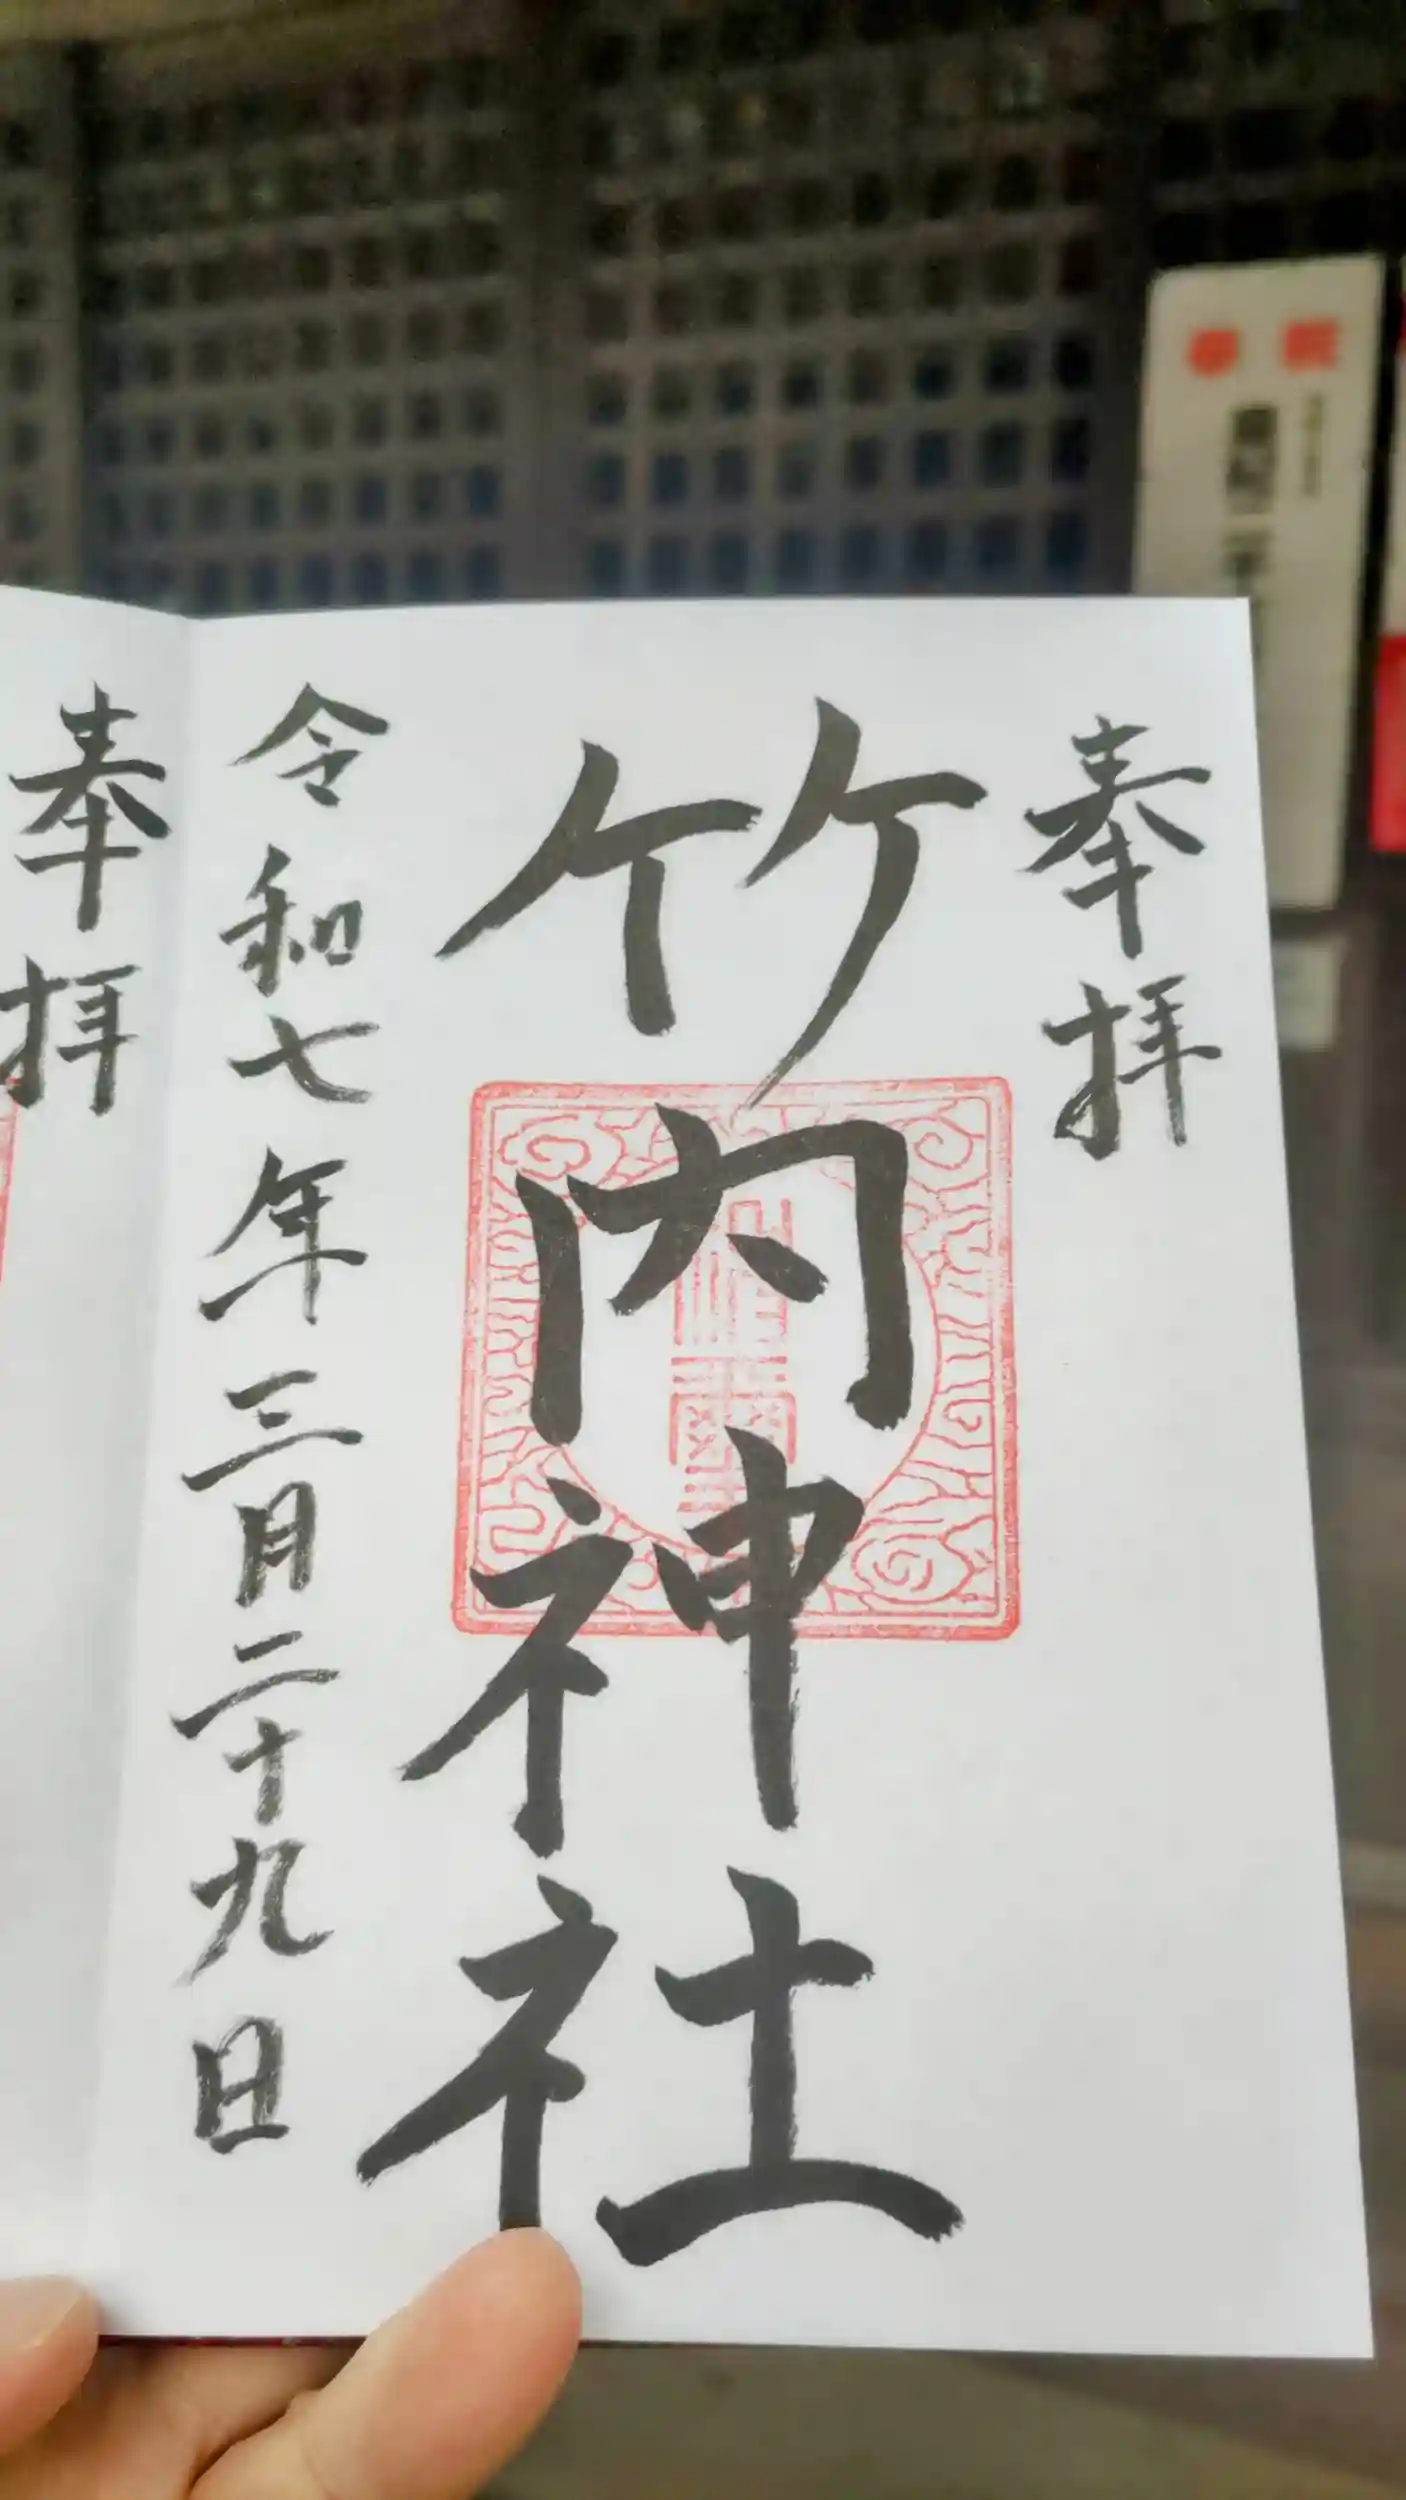 奉拝
竹内神社
令和七年三月二十九日
奉拝